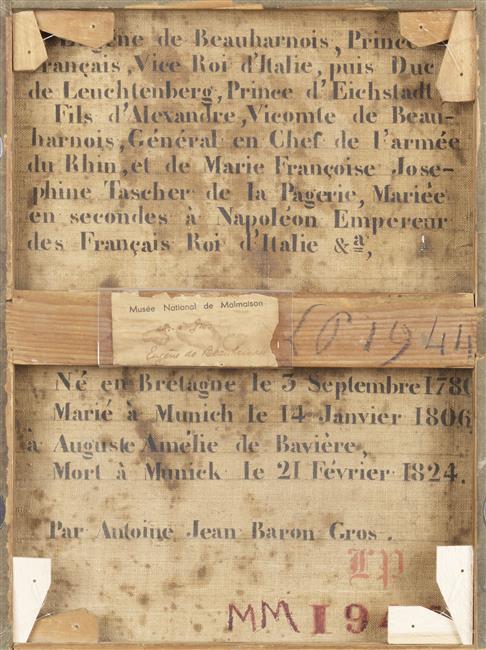 Eugène de Beauharnois, Prince
Français, Vice Roi d'Italie, puis Duc
de Leuchtenberg, Prince d'Eichstadt
Fils d'Alexandre, Vicomte de Beau-
harnois, Général en Chef de l'armée
du Rhin, et de Marie Françoise Jose-
phine Tascher de la Pagerie, Mariée
en secondes à Napoléon Empereur
des Français Roi d'Italie &a,
Musée National de Malmaison
Eugène de Beauharnais
LP 1944
Né en Bretagne le 3 Septembre 178
Marié à Munich le 14 Janvier 1806
à Auguste Amélie de Bavière,
Mort à Munick le 21 Février 1824.
Par Antoine Jean Baron Gros.
LP
MM 194